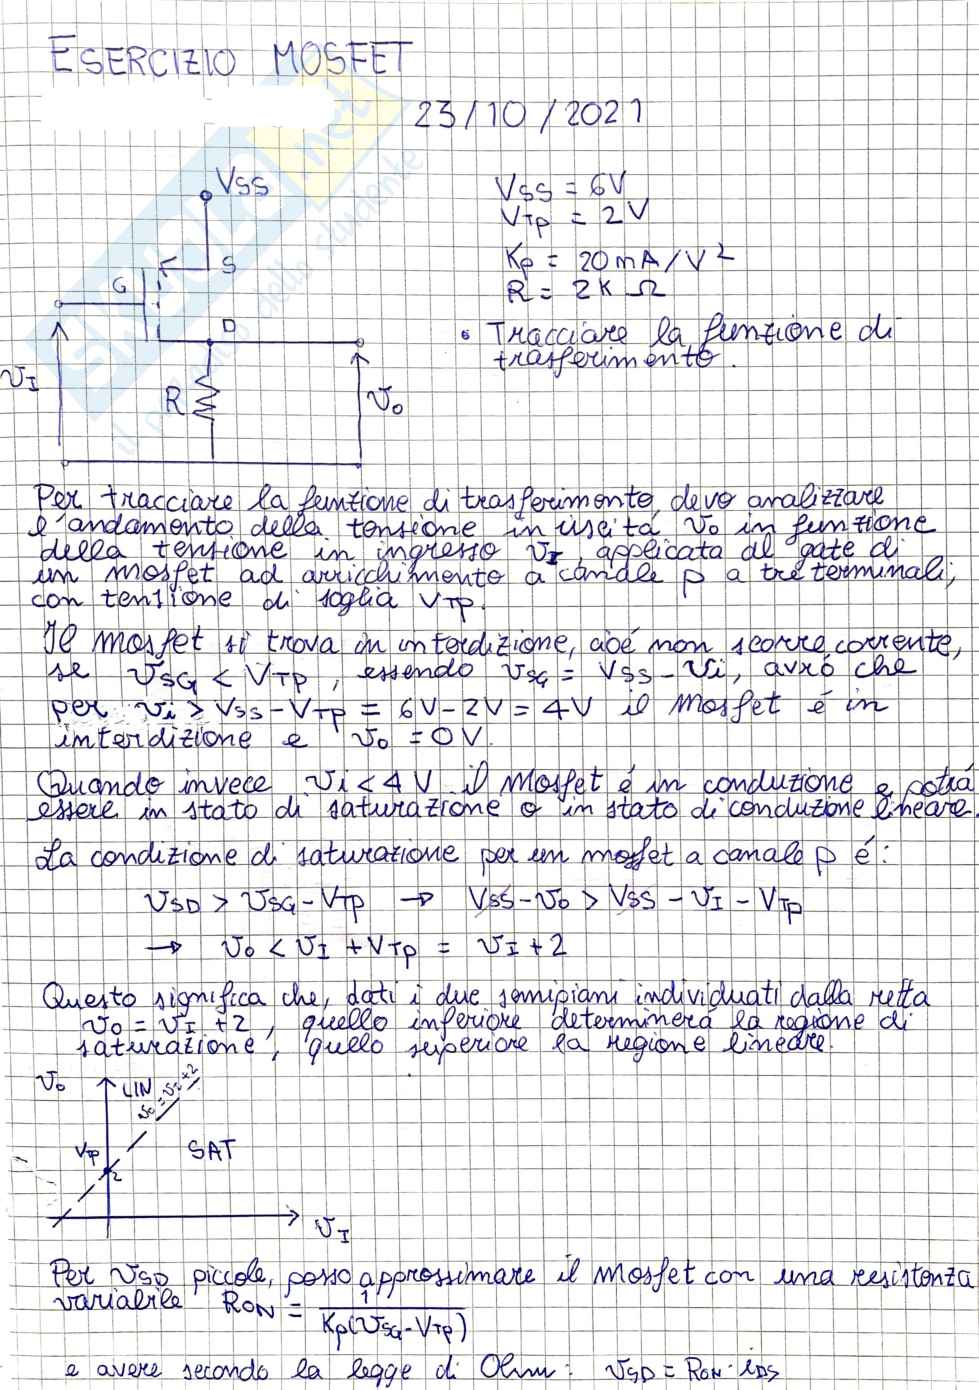 ESERCIZIO MOSFET
23/10/2021
VSS
VSS = 6V
VTP = 2V
S
Kp = 20mA/V²
G
R = 2K Ω
D
• Tracciare la funzione di
trasferimento.
vI
R
vo
SKUOLA.net
il paradiso dello studente
Per tracciare la funzione di trasferimento, devo analizzare
l'andamento della tensione in uscita vo in funzione
della tensione in ingresso vI, applicata al gate di
un mosfet ad arricchimento a canale p a tre terminali,
con tensione di soglia VTP.
Il mosfet si trova in interdizione, cioé non scorre corrente,
se vSG < VTP, essendo vSG = VSS - vi, avrò che
per vi > VSS - VTP = 6V - 2V = 4V il Mosfet é in
interdizione e vo = 0V.
Quando invece vi < 4V il Mosfet é in conduzione e potrá
essere in stato di saturazione o in stato di conduzione lineare.
La condizione di saturazione per un mosfet a canale p é:
vSD > vSG - VTP → VSS - vo > VSS - vI - VTP
→ vo < vI + VTP = vI + 2
Questo significa che, dati i due semipiani individuati dalla retta
vo = vI + 2, quello inferiore determinerá la regione di
saturazione, quello superiore la regione lineare.
vo
LIN
vo = vI + 2
VTP
SAT
2
vI
Per vSD piccole, posso approssimare il Mosfet con una resistenza
variabile RON = 1 / Kp(vSG - VTP)
e avere secondo la legge di Ohm: vSD = RON · iDS